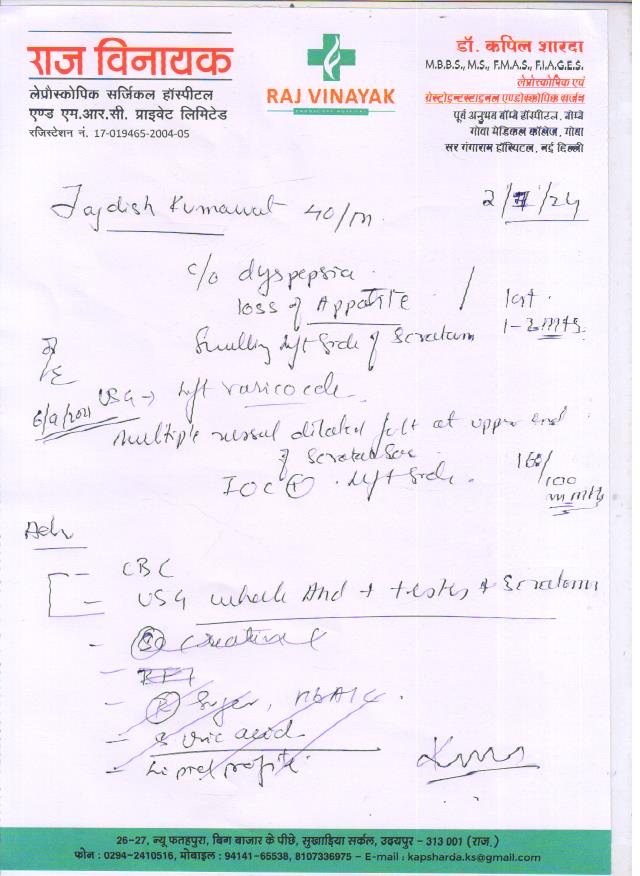 राज विनायक
लेप्रोस्कोपिक सर्जिकल हॉस्पीटल
एण्ड एम.आर.सी. प्राइवेट लिमिटेड
रजिस्टेशन नं. 17-019465-2004-05
RAJ VINAYAK
डॉ. कपिल शारदा
M.B.B.S., M.S., F.M.A.S., F.I.A.G.E.S.
लेप्रोस्कोपिक एवं
गेस्ट्रोइन्टस्टाइनल एण्डोस्कोपिक सर्जन
पूर्व अनुभव बॉम्बे हॉस्पीटल, बॉम्बे
गोवा मेडिकल कॉलेज, गोवा
सर गंगाराम हॉस्पिटल, नई दिल्ली
Jagdish Kumawat 40/m
2/7/24
c/o dyspepsia
loss of Appatite
Swelling left side of Scrotum
last
1-2 mts
6/9/2021 USG → left varicocele
multiple vessel dilated felt at upper end
of scrotal sac
left side
160/100
mmHg
Adv
CBC
USG whole Abd + testes + Scrotum
S creatinine
RFT
Sugar, HbA1C
S Uric acid
Lipid profile
26-27, न्यू फतहपुरा, बिग बाजार के पीछे, सुखाड़िया सर्कल, उदयपुर - 313 001 (राज.)
फोन : 0294-2410516, मोबाइल : 94141-65538, 8107336975 - E-mail : kapsharda.ks@gmail.com